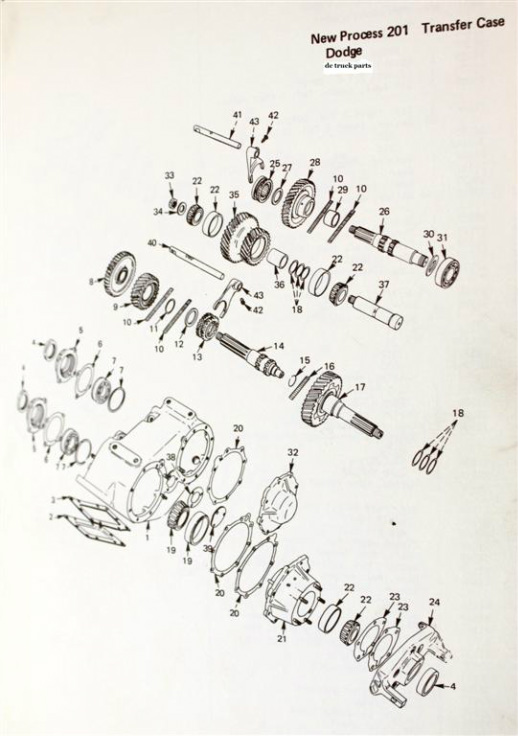 New Process 201 Transfer Case
Dodge
de truck parts
41 43 42
25 27 28
10 29 10
33 22 22 35
34
26
30 31
40
36 18 22 22 37
8
9
43
42
10 11 10 12 13
14
15 16
17
4 5 6 7 7
4
5 6 7
18
20 32
38
3
2
1
19 19 39 20 20
21
22 22 23 23 24
4